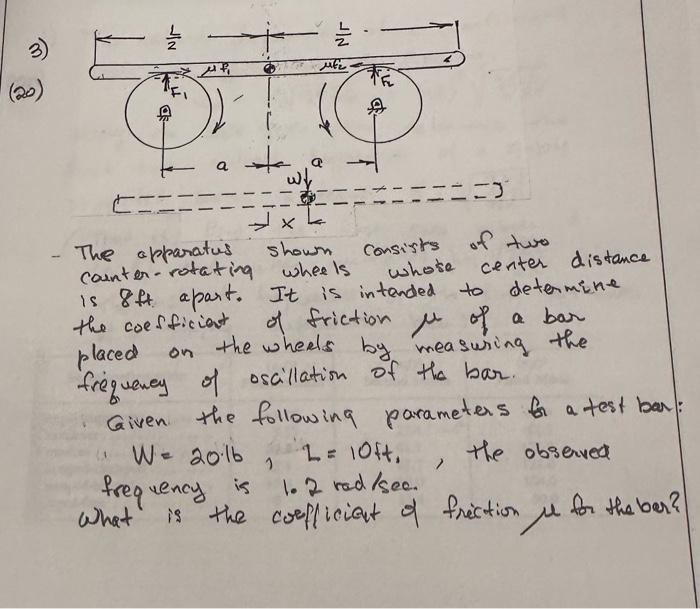 L/2 L/2
3)
μf₁ μF₂
(20)
F₁ F₂
a a
W
x
- The apparatus shown consists of two
counter-rotating wheels whose center distance
is 8ft apart. It is intended to determine
the coefficient of friction μ of a bar
placed on the wheels by measuring the
frequency of oscillation of the bar.
Given the following parameters for a test bar:
W = 20 lb, L = 10ft, , the observed
frequency is 1.2 rad/sec.
What is the coefficient of friction μ for the bar?